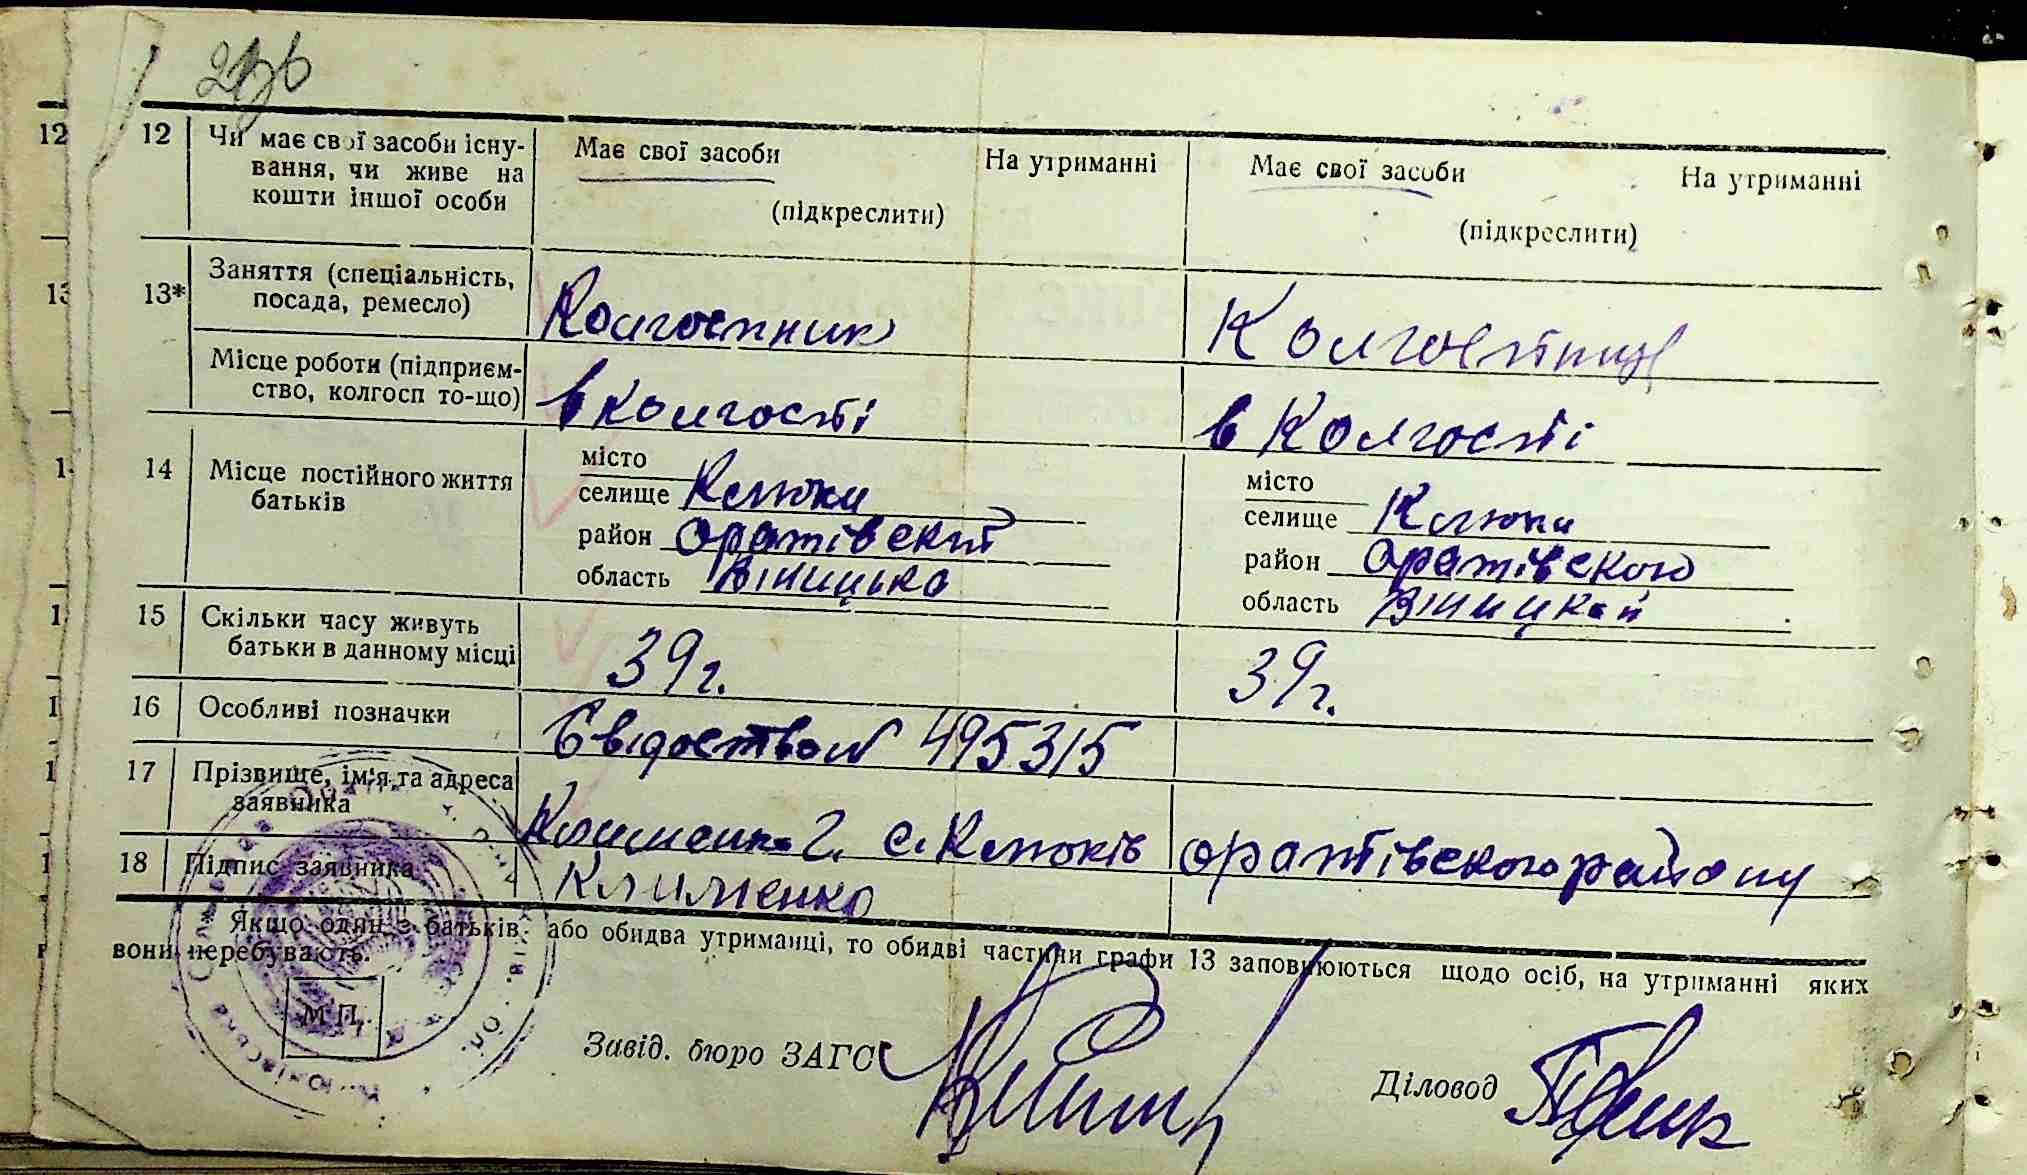 12 Чи має свої засоби існу-
вання, чи живе на
кошти іншої особи
Має свої засоби На утриманні
(підкреслити)
Має свої засоби На утриманні
(підкреслити)
13* Заняття (спеціальність,
посада, ремесло)
Колгоспник
Колгоспниця
Місце роботи (підприєм-
ство, колгосп то-що)
в колгості
в Колгості
14 Місце постійного життя
батьків
місто
селище Клюки
район оратівский
область Віницько
місто
селище Клюки
район оратівского
область Віницкой
15 Скільки часу живуть
батьки в данному місці
39 г.
39 г.
16 Особливі позначки
Євідоство № 495315
17 Прізвище, ім'я та адреса
заявника
Клименко Г. с. Клюків оратівского району
18 Підпис заявника
Клименко
Якщо один з батьків або обидва утриманці, то обидві частини графи 13 заповнюються щодо осіб, на утриманні яких
вони перебувають.
М П.
Завід. бюро ЗАГС
Діловод